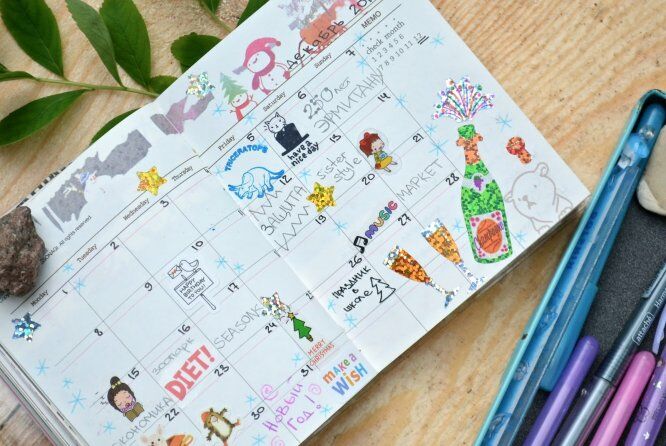 ДЕКАБРЬ
MEMO
check month
1 2 3 4 5 6
7 8 9 10 11 12
Monday
Tuesday
Wednesday
Thursday
Friday
Saturday
Sunday
All rights reserved
1
2
3
5
6
7
TRICERATOPS
have a
nice day
250 лет
ЭРМИТАЖУ
8
9
10
12
14
HAPPY
BIRTHDAY
TO YOU
ЗАЩИТА
sister
style
15
17
19
20
21
ЭКОНОМИКА
зоопарк
DIET!
SEASONS
MUSIC
МАРКЕТ
22
24
26
27
28
MERRY
CHRISTMAS
ПРАЗДНИК
В
ШКОЛЕ
30
31
НОВЫЙ
ГОД!
make a
WiSH